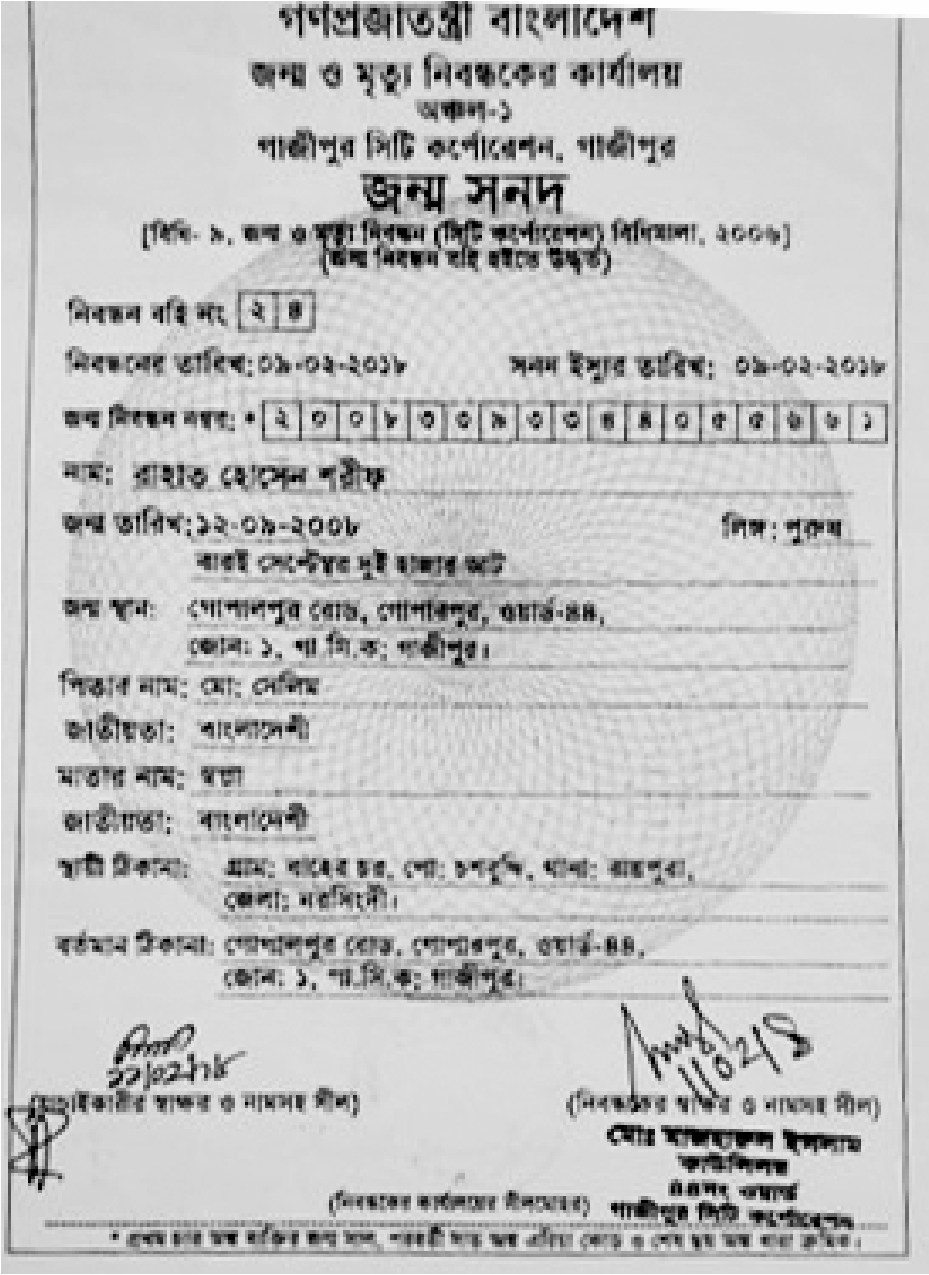 গণপ্রজাতন্ত্রী বাংলাদেশ
জন্ম ও মৃত্যু নিবন্ধকের কার্যালয়
অঞ্চল-১
গাজীপুর সিটি কর্পোরেশন, গাজীপুর
জন্ম সনদ
[বিধি- ৯, জন্ম ও মৃত্যু নিবন্ধন (সিটি কর্পোরেশন) বিধিমালা, ২০০৬]
(জন্ম নিবন্ধন বহি হইতে উদ্ধৃত)
নিবন্ধন বহি নং ২৪
নিবন্ধনের তারিখ: ০৯-০২-২০১৮ সনদ ইস্যুর তারিখ: ০৯-০২-২০১৮
জন্ম নিবন্ধন নম্বর: * ২০০৮৩৩৯৩৩৪৪০৫৫৬৬১
নাম: রাহাত হোসেন শরীফ
জন্ম তারিখ: ১২-০৯-২০০৮ লিঙ্গ: পুরুষ
বারই সেপ্টেম্বর দুই হাজার আট
জন্ম স্থান: গোপালপুর রোড, গোপারপুর, ওয়ার্ড-৪৪,
জোন: ১, গা.সি.ক; গাজীপুর।
পিতার নাম: মো: সেলিম
জাতীয়তা: বাংলাদেশী
মাতার নাম: স্বপ্না
জাতীয়তা: বাংলাদেশী
স্থায়ী ঠিকানা: গ্রাম: বাহের চর, পো: থানা: রায়পুরা,
জেলা: নরসিংদী।
বর্তমান ঠিকানা: গোপালপুর রোড, গোপারপুর, ওয়ার্ড-৪৪,
জোন: ১, গা.সি.ক; গাজীপুর।
(যাচাইকারীর স্বাক্ষর ও নামসহ সীল) (নিবন্ধকের স্বাক্ষর ও নামসহ সীল)
মোঃ মাজহারুল ইসলাম
কাউন্সিলর
৪৪নং ওয়ার্ড
(নিবন্ধকের কার্যালয়ের সীলমোহর) গাজীপুর সিটি কর্পোরেশন
* প্রথম চার অঙ্ক ব্যক্তির জন্ম সাল, পরবর্তী সাত অঙ্ক এরিয়া কোড ও শেষ ছয় অঙ্ক ধারা ক্রমিক।